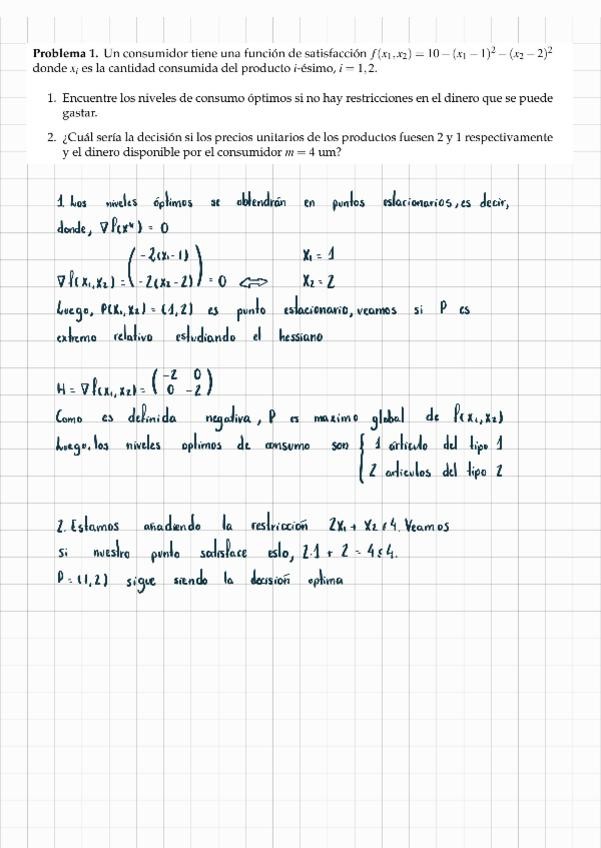 Problema 1. Un consumidor tiene una función de satisfacción f(x₁,x₂) = 10−(x₁−1)²−(x₂−2)²
donde xᵢ es la cantidad consumida del producto i-ésimo, i = 1,2.
1. Encuentre los niveles de consumo óptimos si no hay restricciones en el dinero que se puede
gastar.
2. ¿Cuál sería la decisión si los precios unitarios de los productos fuesen 2 y 1 respectivamente
y el dinero disponible por el consumidor m = 4 um?
1. Los niveles óptimos se obtendrán en puntos estacionarios, es decir,
donde, ∇f(x*) = 0
∇f(x₁,x₂) = (-2(x₁-1) / -2(x₂-2)) = 0 ⇔ x₁ = 1 x₂ = 2
Luego, P(x₁,x₂) = (1,2) es punto estacionario, veamos si P es
extremo relativo estudiando el hessiano
H = ∇f(x₁,x₂) = (-2 0 / 0 -2)
Como es definida negativa, P es maximo global de f(x₁,x₂)
Luego, los niveles optimos de consumo son { 1 artículo del tipo 1
2 articulos del tipo 2
2. Estamos añadiendo la restricción 2x₁ + x₂ ≤ 4. Veamos
si nuestro punto satisface esto, 2·1 + 2 = 4 ≤ 4.
P = (1,2) sigue siendo la decisión optima